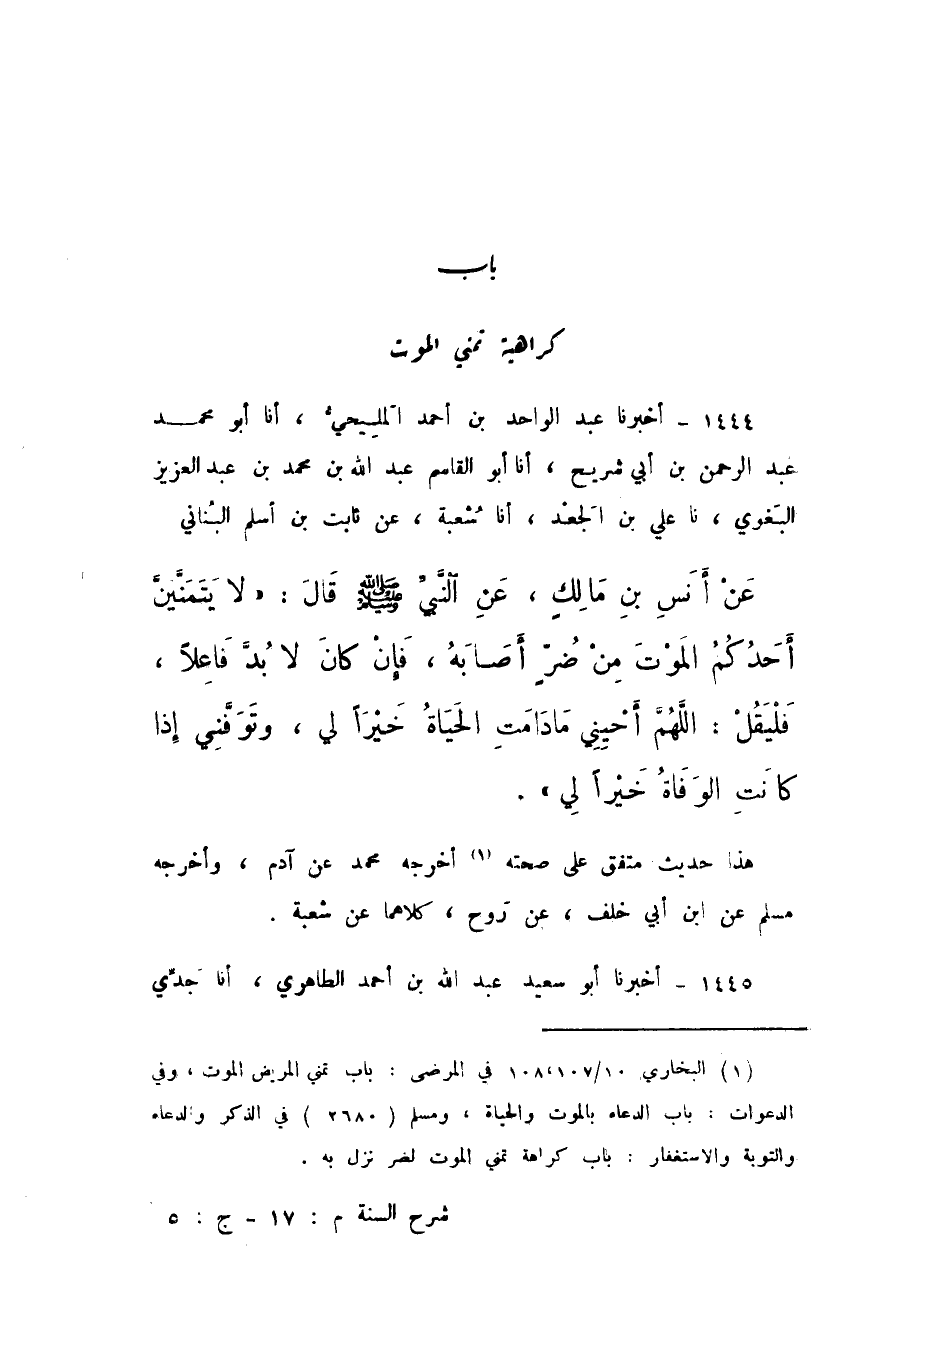 باب
كراهية تمني الموت
١٤٤٤ - أخبرنا عبد الواحد بن أحمد المَلِيحيُّ ، أنا أبو محمد
عبد الرحمن بن أبي شريح ، أنا أبو القاسم عبد الله بن محمد بن عبد العزيز
البَغوي ، نا علي بن الجَعْد ، أنا شُعْبة ، عن ثابت بن أسلم البُناني
عَنْ أَنَسِ بنِ مَالِكٍ ، عَنِ النَّبيِّ ﷺ قَالَ : « لا يَتَمَنَّيَنَّ
أَحَدُكُمُ المَوْتَ مِنْ ضُرٍّ أَصَابَهُ ، فَإِنْ كانَ لا بُدَّ فَاعِلاً ،
فَلْيَقُلْ : اللَّهُمَّ أَحْيِنِي مَادَامَتِ الحَيَاةُ خَيْرَاً لي ، وتَوَفَّنِي إِذا
كانَتِ الوَفَاةُ خَيْراً لِي » .
هذا حديث متفق على صحته (١) أخرجه محمد عن آدم ، وأخرجه
مسلم عن ابن أبي خلف ، عن رَوح ، كلاهما عن شعبة .
١٤٤٥ - أخبرنا أبو سعيد عبد الله بن أحمد الطاهري ، أنا جَدّي
(١) البخاري ١٠٨،١٠٧/١٠ في المرضى : باب تمني المريض الموت ، وفي
الدعوات : باب الدعاء بالموت والحياة ، ومسلم ( ٢٦٨٠ ) في الذكر والدعاء
والتوبة والاستغفار : باب كراهة تمني الموت لضر نزل به .
شرح السنة م : ١٧ - ج : ٥